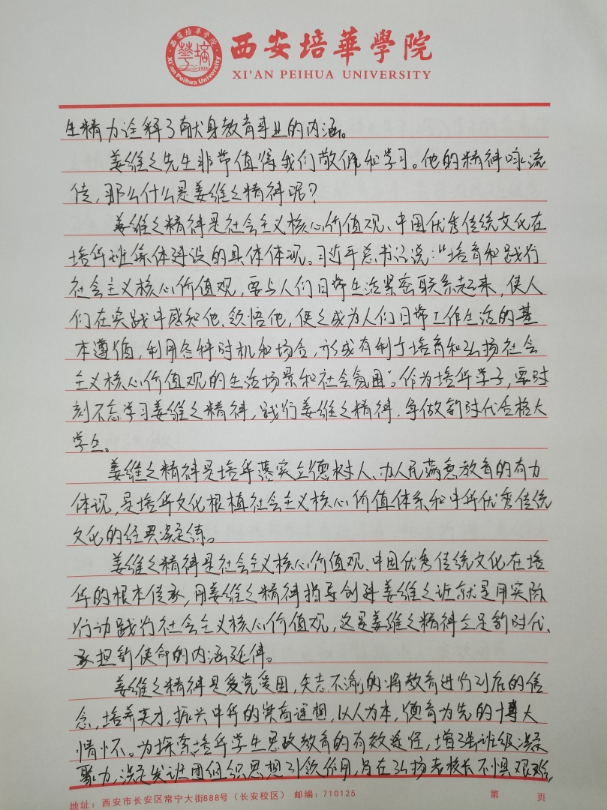 西安培華學院
XI'AN PEIHUA UNIVERSITY
生精力诠释了献身教育事业的内涵。
姜维之先生非常值得我们敬佩和学习。他的精神永流
传，那么什么是姜维之精神呢？
姜维之精神是社会主义核心价值观、中国优秀传统文化在
培华班集体建设的具体体现。习近平总书记说：“培育和践行
社会主义核心价值观，要与人们日常生活紧密联系起来，使人
们在实践中感知他、领悟他，使之成为人们日常工作生活的基
本遵循，利用各种时机和场合，形成有利于培育和弘扬社会
主义核心价值观的生活场景和社会氛围”。作为培华学子，要时
刻不忘学习姜维之精神，践行姜维之精神，争做新时代合格大
学生。
姜维之精神是培华落实立德树人、为人民满意教育的有力
体现，是培华文化根植社会主义核心价值体系和中华优秀传统
文化的经典凝练。
姜维之精神是社会主义核心价值观、中国优秀传统文化在培
华的根本传承，用姜维之精神指导创建姜维之班就是用实际
行动践行社会主义核心价值观，这是姜维之精神立足新时代、
承担新使命的内涵延伸。
姜维之精神是爱党爱国，矢志不渝的将教育进行到底的信
念，培养英才，振兴中华的崇高理想，以人为本，德育为先的博大
情怀。为探索培华学生思政教育的有效途径，增强班级凝
聚力，活发团组织思想引领作用，旨在弘扬老校长不惧艰难
地址：西安市长安区常宁大街888号（长安校区） 邮编：710125 第 页